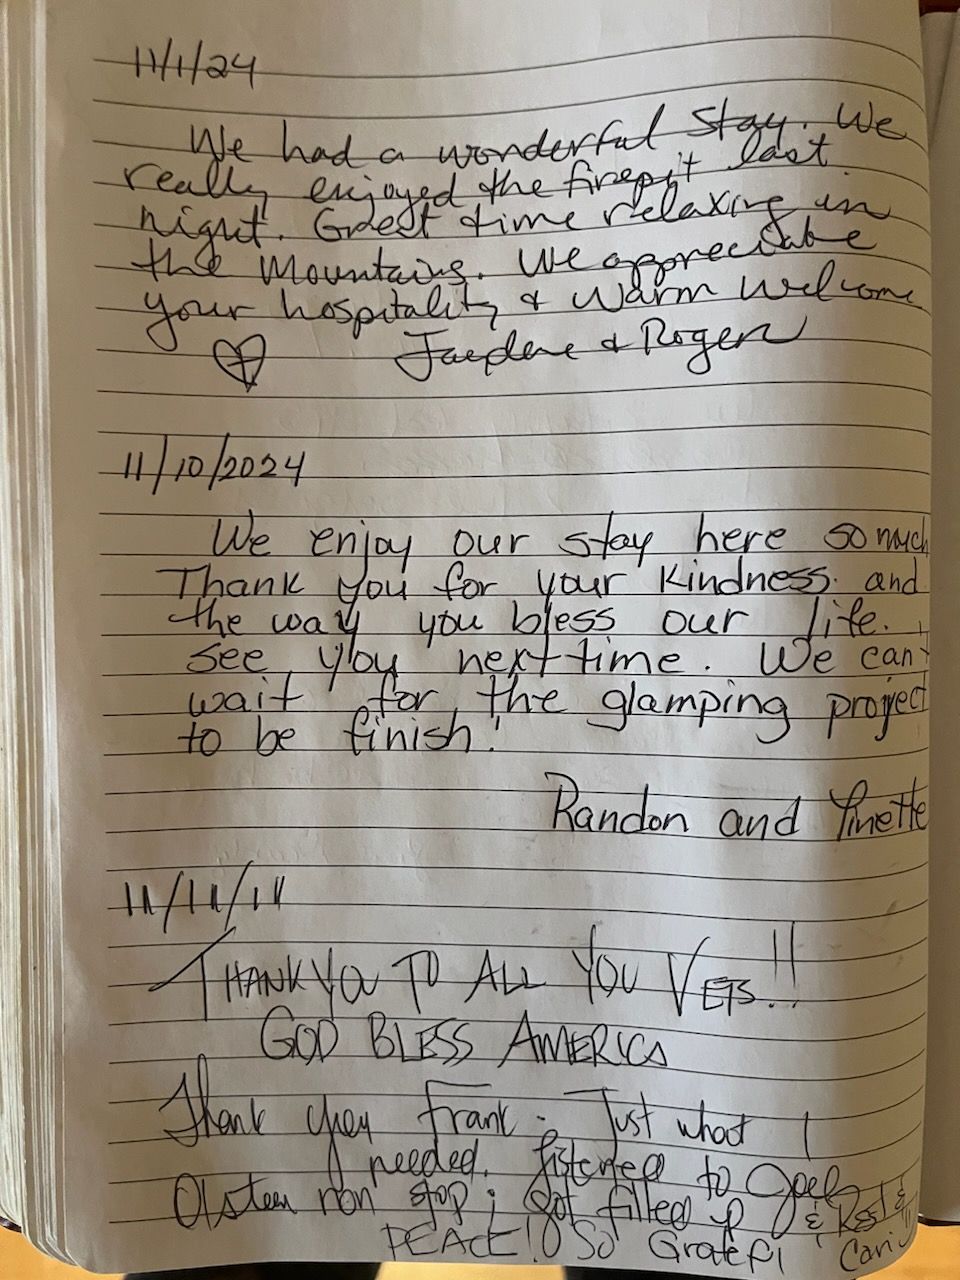 11/1/24
We had a wonderful stay. We
really enjoyed the firepit last
night. Great time relaxing in
the Mountains. We appreciate
your hospitality & Warm Welcome
& Roger
11/10/2024
We enjoy our stay here so much
Thank you for your Kindness. and
the way you bless our life.
see you next time. We can't
wait for the glamping project
to be finish!
Randon and Yinette
11/11/11
THANK YOU TO ALL YOU VETS!!
GOD BLESS AMERICA
Thank you Frank. Just what I
needed. Listened to Joel
Osteen non stop; got filled up & Rest &
PEACE!! So Gratefl